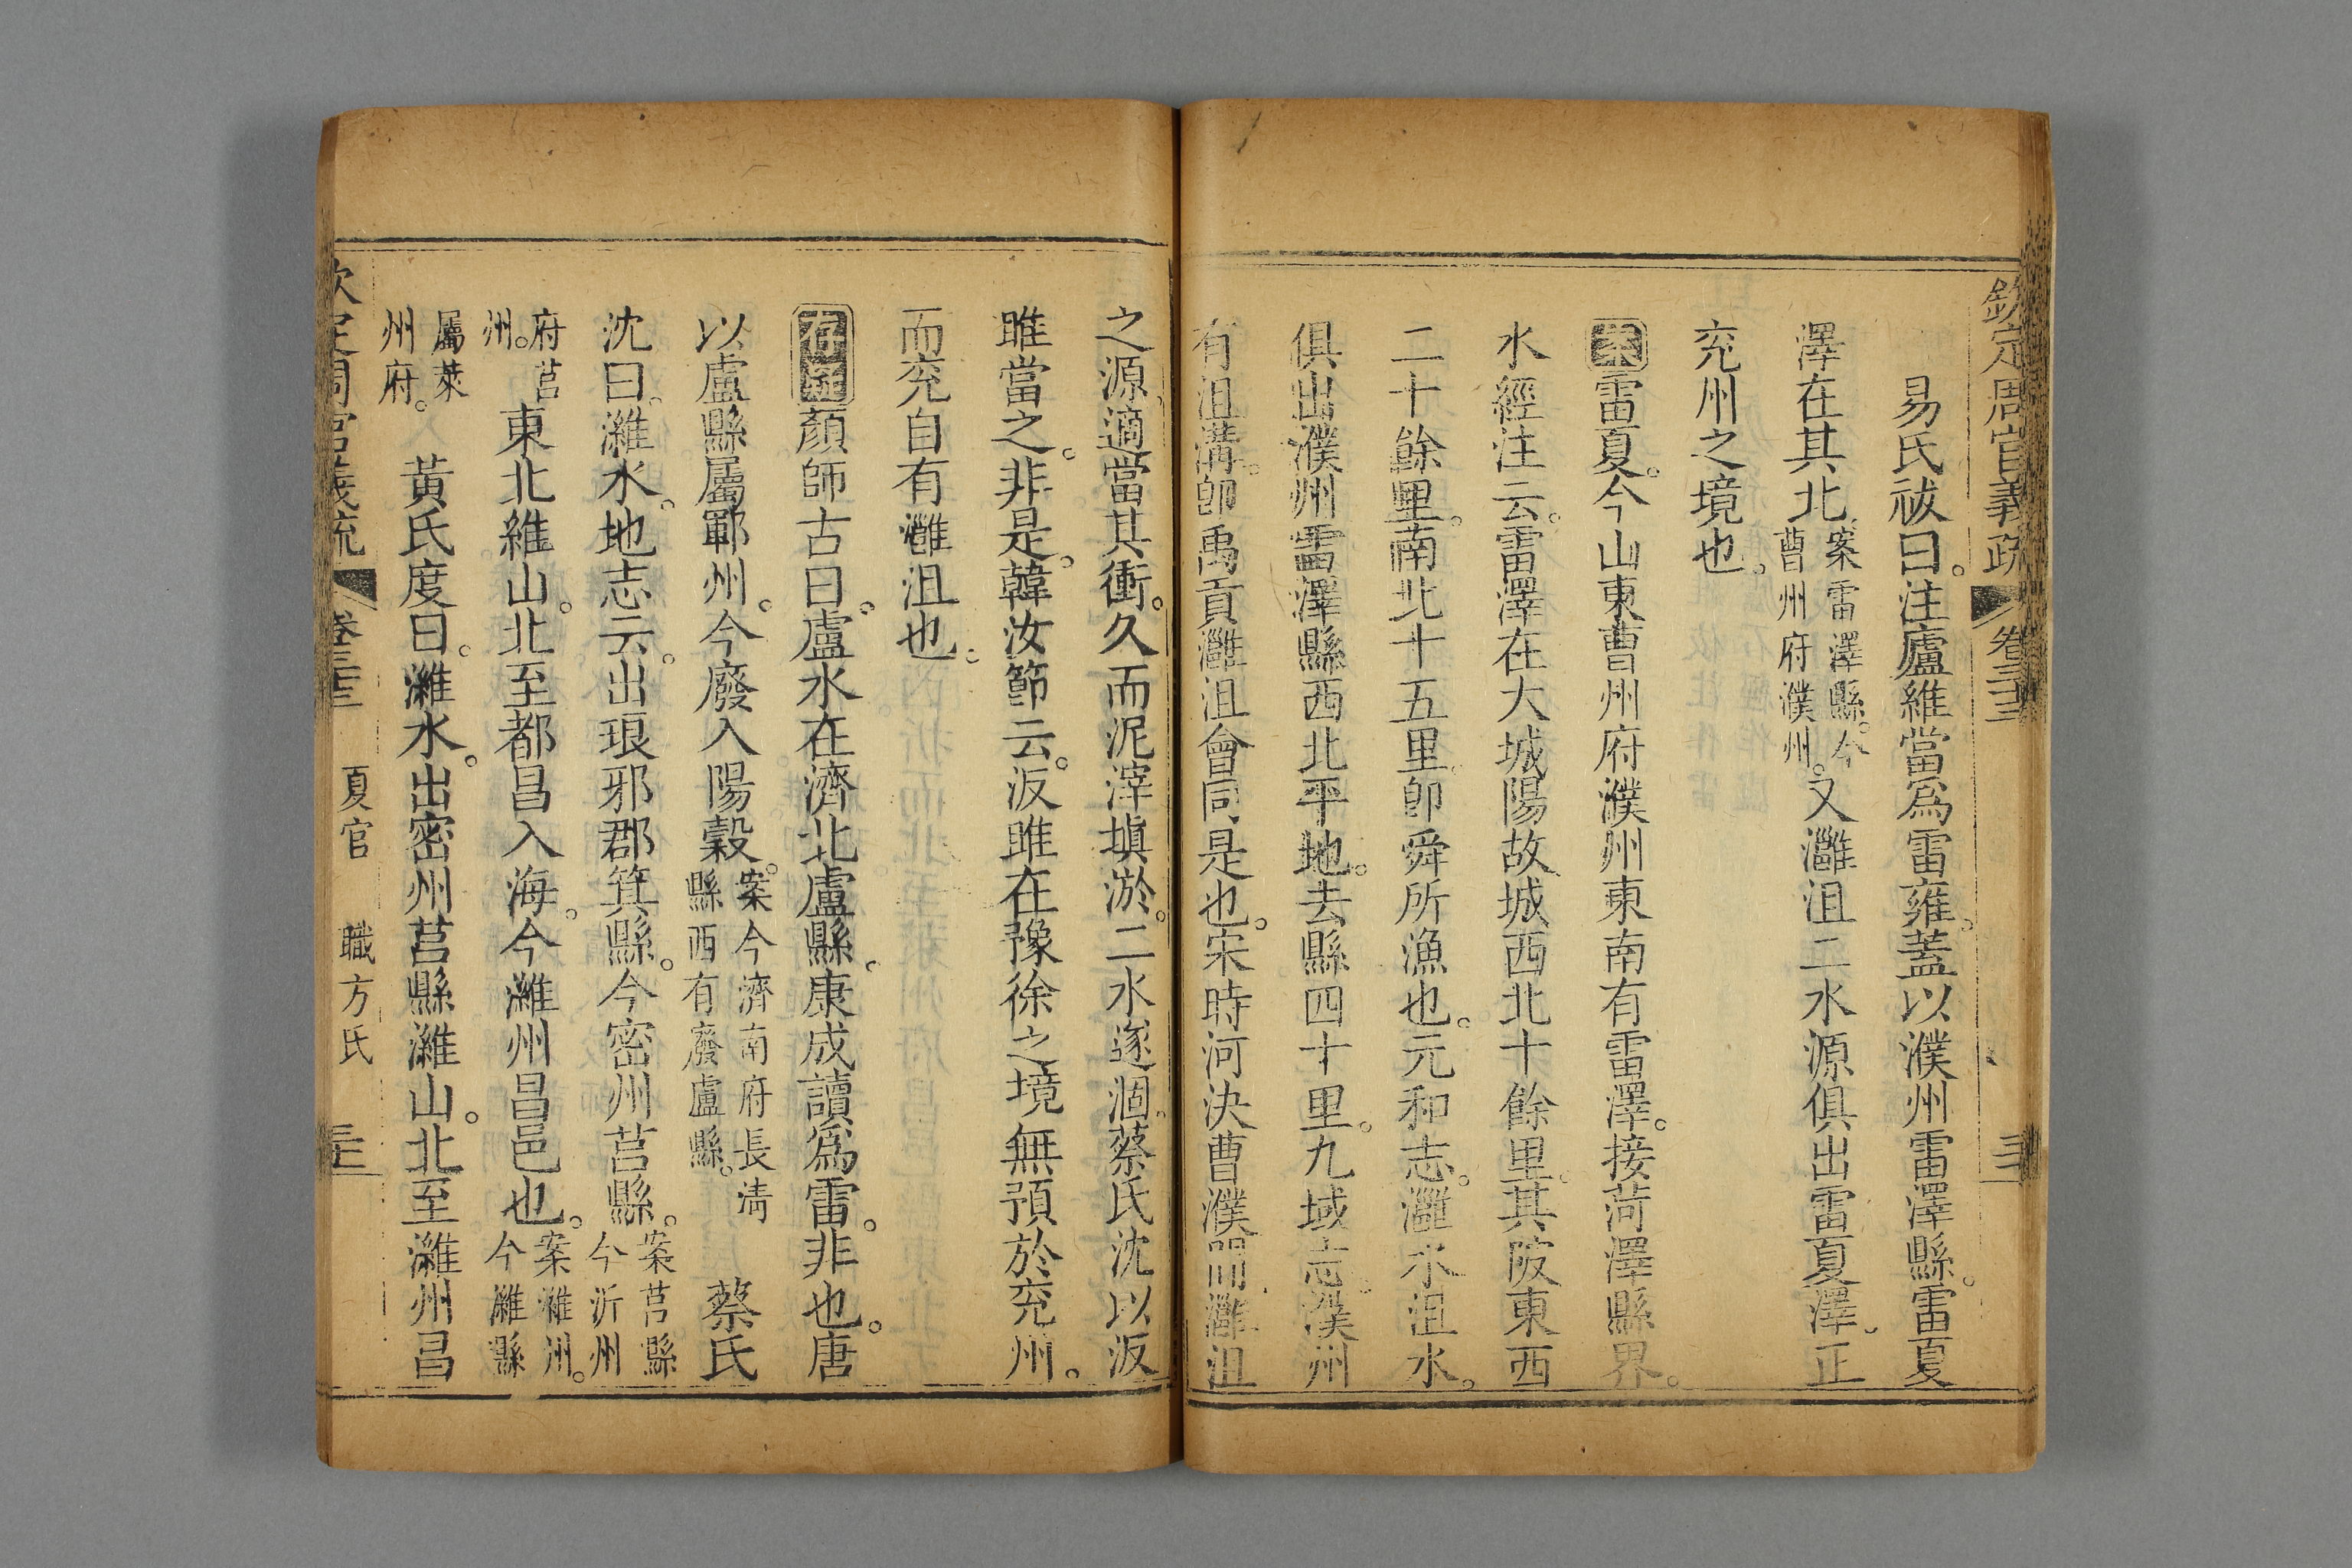 欽定周官義疏 卷三十三
易氏祓曰。注廬維當爲雷雍。蓋以濮州雷澤縣。雷夏
澤在其北。案雷澤縣。今曹州府濮州。又灉沮二水源俱出雷夏澤。正
兖州之境也。
案雷夏。今山東曹州府濮州東南有雷澤。接菏澤縣界。
水經注云。雷澤在大城陽故城西北十餘里。其陂東西
二十餘里。南北十五里。卽舜所漁也。元和志。灉水沮水。
俱出濮州雷澤縣西北平地。去縣四十里。九域志。濮州
有沮溝。卽禹貢灉沮會同是也。宋時河決曹濮間。灉沮
之源。適當其衝。久而泥滓塡淤。二水遂涸。蔡氏沈以汳
雎當之。非是。韓汝節云。汳雎在豫徐之境。無預於兖州。
而兖自有灉沮也。
顏師古曰。盧水在濟北盧縣。康成讀爲雷。非也。唐
以盧縣屬鄆州。今廢入陽穀。案今濟南府長淸縣西有廢盧縣。 蔡氏
沈曰。濰水。地志云。出琅邪郡箕縣。今密州莒縣。案莒縣今沂州
府莒州。東北維山。北至都昌入海。今濰州昌邑也。案濰州。今濰縣
屬萊州府。黃氏度曰。濰水。出密州莒縣濰山。北至濰州昌
欽定周官義疏 卷三十三 夏官 職方氏